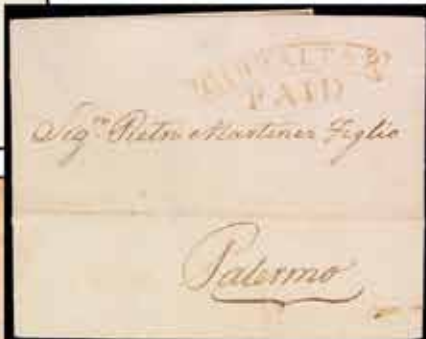 GIBRALTAR
PAID
Sigʳᵉ Pietro Martinez Figlio
Palermo